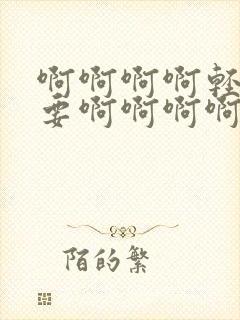 啊啊啊啊轻
要啊啊啊啊
陌的繁